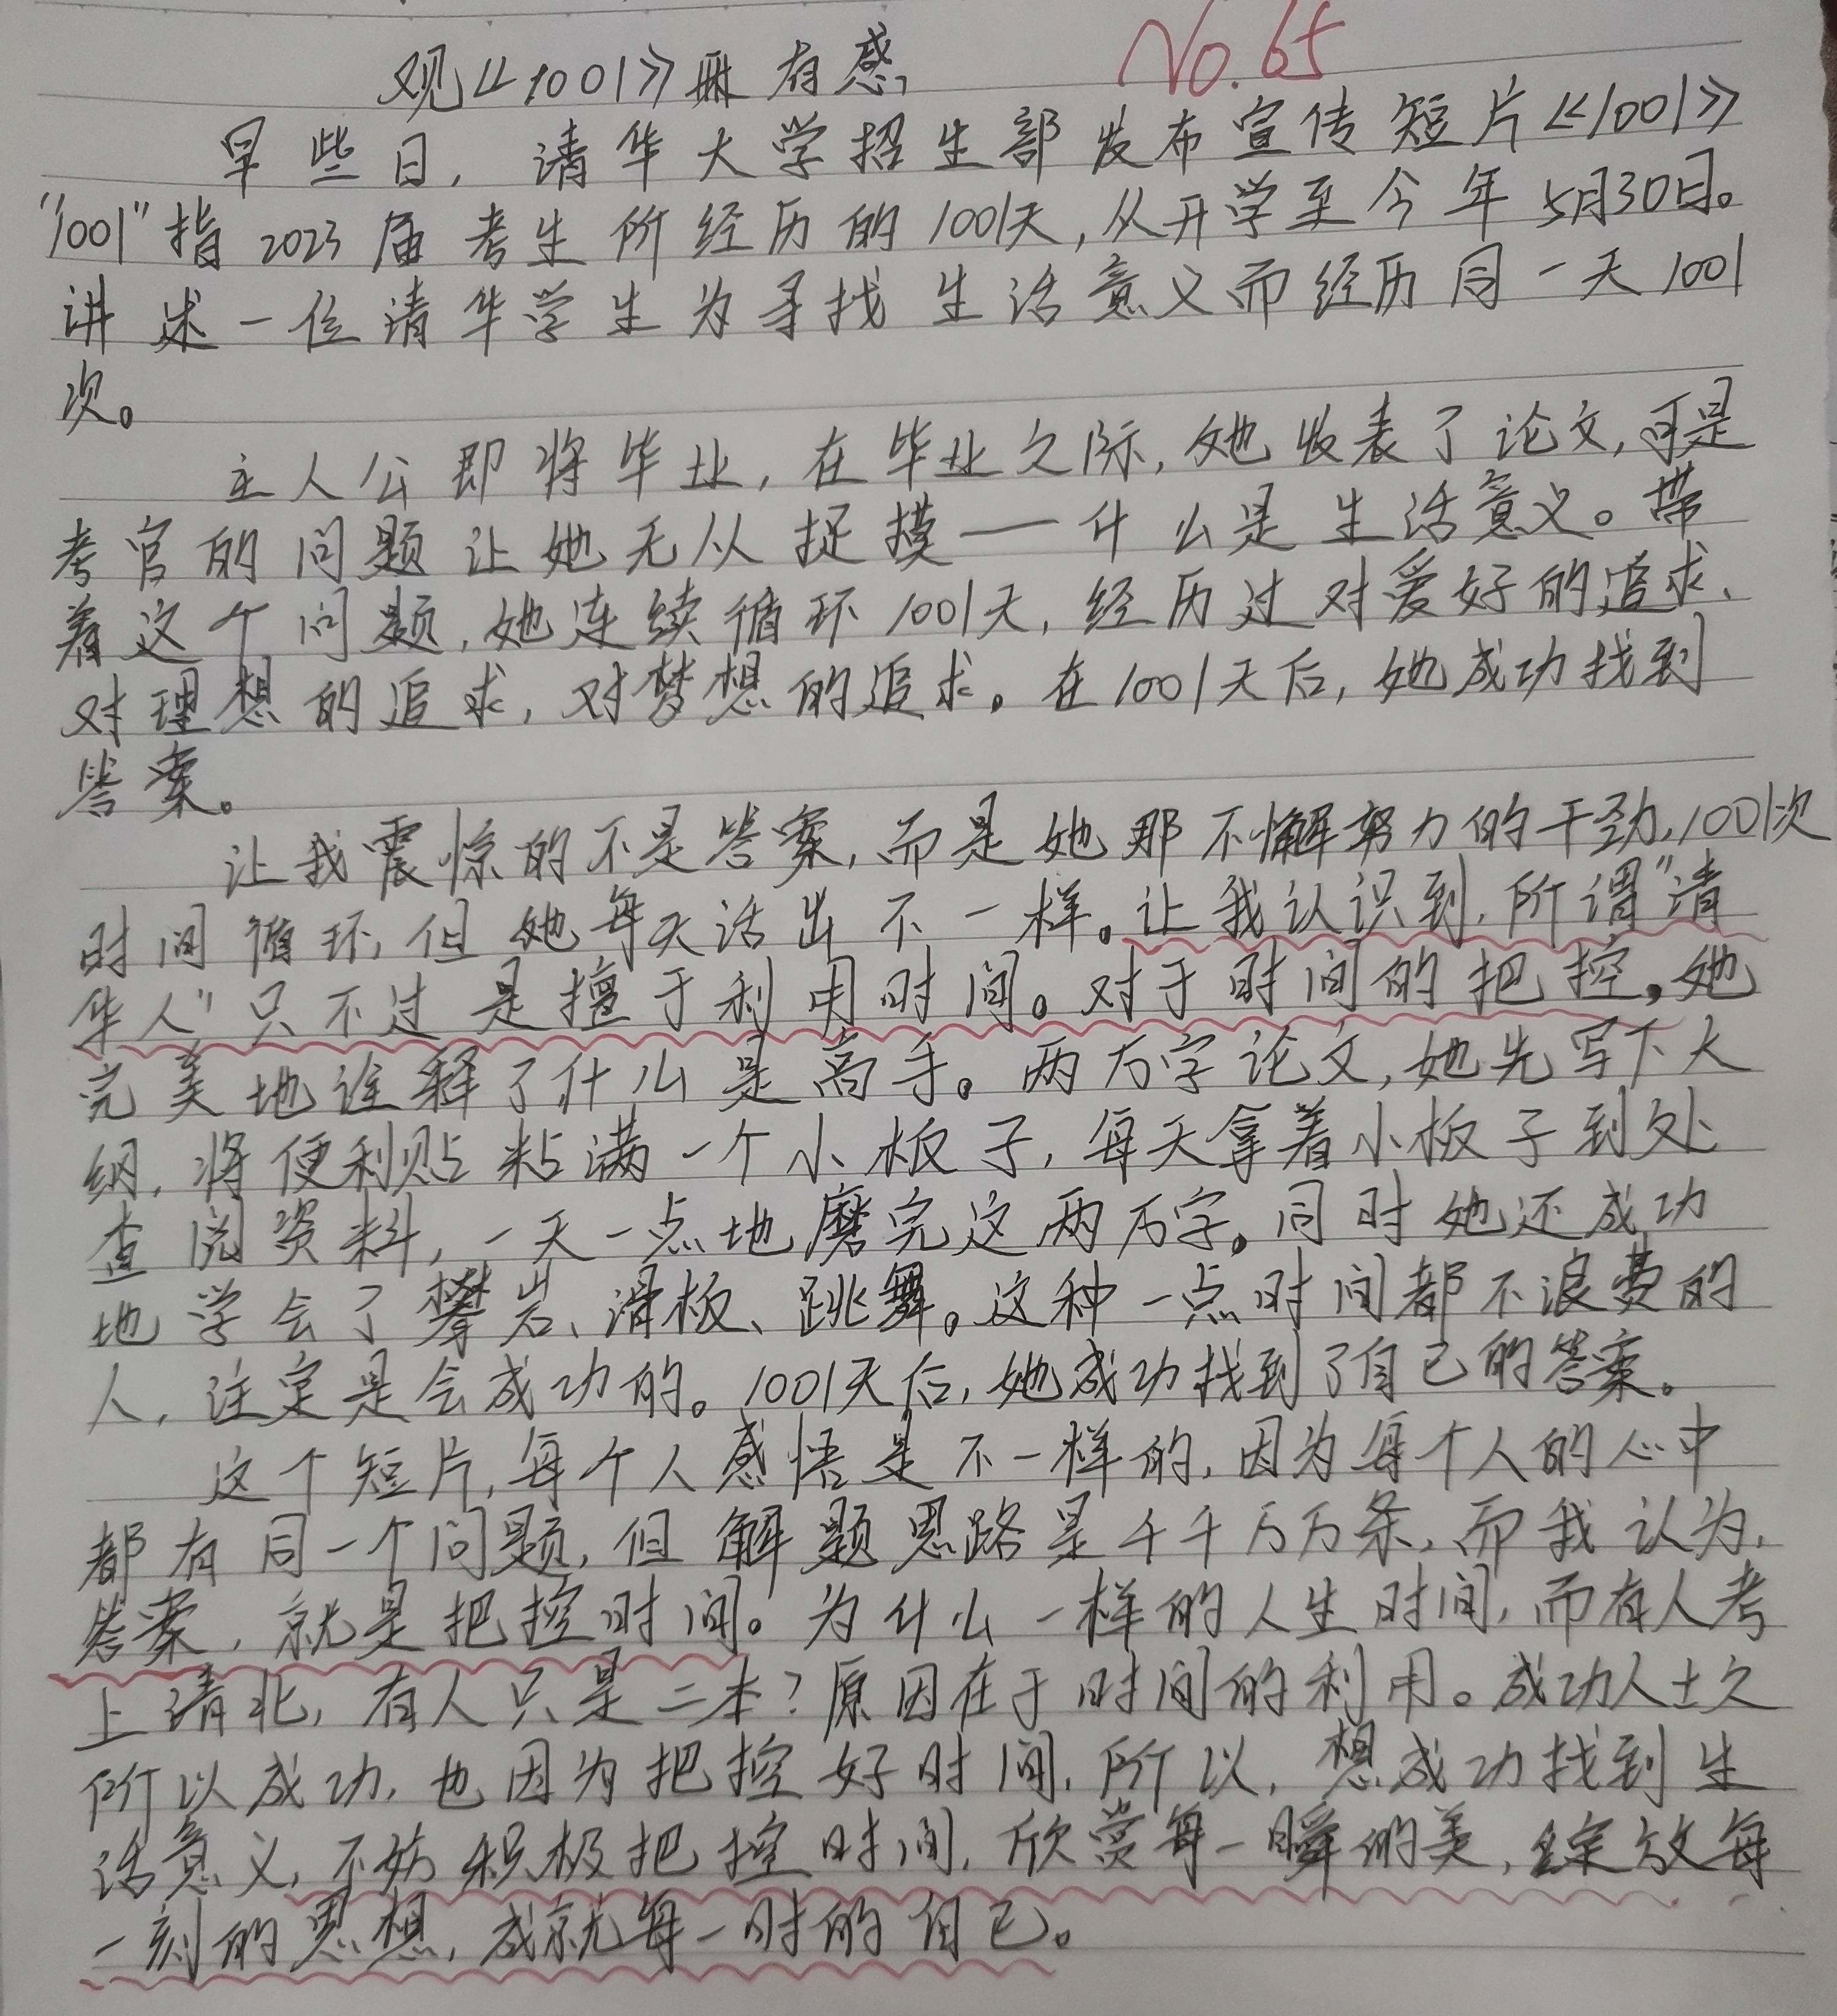 观《1001》有感
No.65
早些日，清华大学招生部发布宣传短片《1001》
"1001"指2023届考生所经历的1001天，从开学至今年5月30日。
讲述一位清华学生为寻找生活意义而经历同一天1001
次。
主人公即将毕业，在毕业之际，她收表了论文，可是
考官的问题让她无从捉摸——什么是生活意义。带
着这个问题，她连续循环1001天，经历过对爱好的追求、
对理想的追求，对梦想的追求。在1001天后，她成功找到
答案。
让我震惊的不是答案，而是她那不懈努力的干劲，1001次
时间循环，但她每天活出不一样。让我认识到，所谓"清
华人"只不过是擅于利用时间。对于时间的把控，她
完美地诠释了什么是高手。两万字论文，她先写下大
纲，将便利贴粘满一个小板子，每天拿着小板子到处
查阅资料，一天一点地磨完这两万字。同时她还成功
地学会了攀岩、滑板、跳舞。这种一点时间都不浪费的
人，注定是会成功的。1001天后，她成功找到了自己的答案。
这个短片，每个人感悟是不一样的，因为每个人的心中
都有同一个问题，但解题思路是千千万万条，而我认为，
答案，就是把控时间。为什么一样的人生时间，而有人考
上清北，有人只是二本？原因在于时间的利用。成功人士之
所以成功，也因为把控好时间，所以，想成功找到生
活意义，不妨积极把控时间，欣赏每一瞬的美，综放每
一刻的思想，成就每一时的自己。